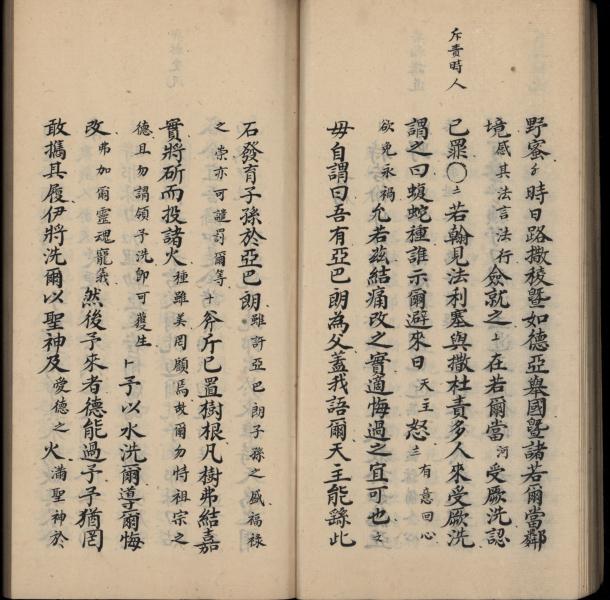 斥責時人
野蜜〥時日路撒稜曁如德亞舉國曁諸若爾當鄰
境感其法言法行僉就之〦在若爾當河受厥洗認
已罪〇〧若翰見法利塞與撒杜責多人來受厥洗
謂之曰蝮蛇種誰示爾避來日天主怒〨有意回心
欲免永禍允若玆結痛改之實適悔過之宜可也〩
毋自謂曰吾有亞巴朗為父蓋我語爾天主能繇此
石發育子孫於亞巴朗雖許亞巴朗子孫之盛福祿
之崇亦可譴罰爾等十斧斤已置樹根凡樹弗結嘉
實將斫而投諸火種雖美罔顧焉故爾勿恃祖宗之
德且勿謂領予洗卽可獲生⺊予以水洗爾導爾悔
改弗加爾靈魂寵義然後予來者德能過予予猶罔
敢攜其履伊將洗爾以聖神及愛德之火滿聖神於